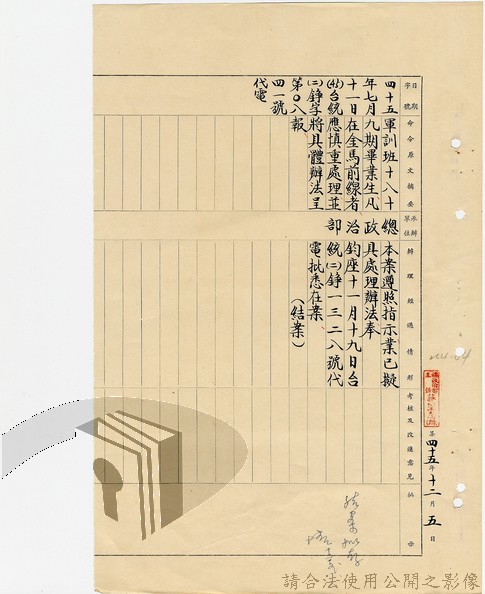 日期
字號
命令原文摘要
承辦單位
辦理經過情形
考核及改進意見
批示
四十五
年七月九
十一日
(45)台統
(二)錚字
第〇八
四一號
代電
軍訓班十八十
期畢業生凡
在金馬前線者
應慎重處理並
將具體辦法呈
報
總政治部
本案遵照指示業已擬
具處理辦法奉
鈞座十一月十九日台
統(二)錚一三二八號代
電批悉在案
(結案)
四十五年十二月五日
請合法使用公開之影像